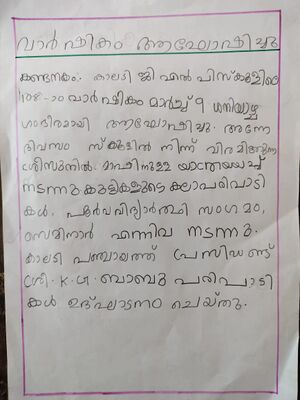 വാർഷികം ആഘോഷിച്ചു
കണ്ടനകം: കാലടി ജി എൽ പി സ്കൂളിലെ
108-ാം വാർഷികം മാർച്ച് 9 ശനിയാഴ്ച
ഗംഭീരമായി ആഘോഷിച്ചു. അന്നേ
ദിവസം സ്കൂളിൽ നിന്ന് വിരമിക്കുന്ന
മാഷിനുള്ള യാത്രയയപ്പ്
നടന്നു. കുട്ടികളുടെ കലാപരിപാടി
കൾ, പൂർവവിദ്യാർത്ഥി സംഗമം,
സെമിനാർ എന്നിവ നടന്നു.
കാലടി പഞ്ചായത്ത് പ്രസിഡണ്ട്
ശ്രീ. K.G. ബാബു പരിപാടി
കൾ ഉദ്ഘാടനം ചെയ്തു.